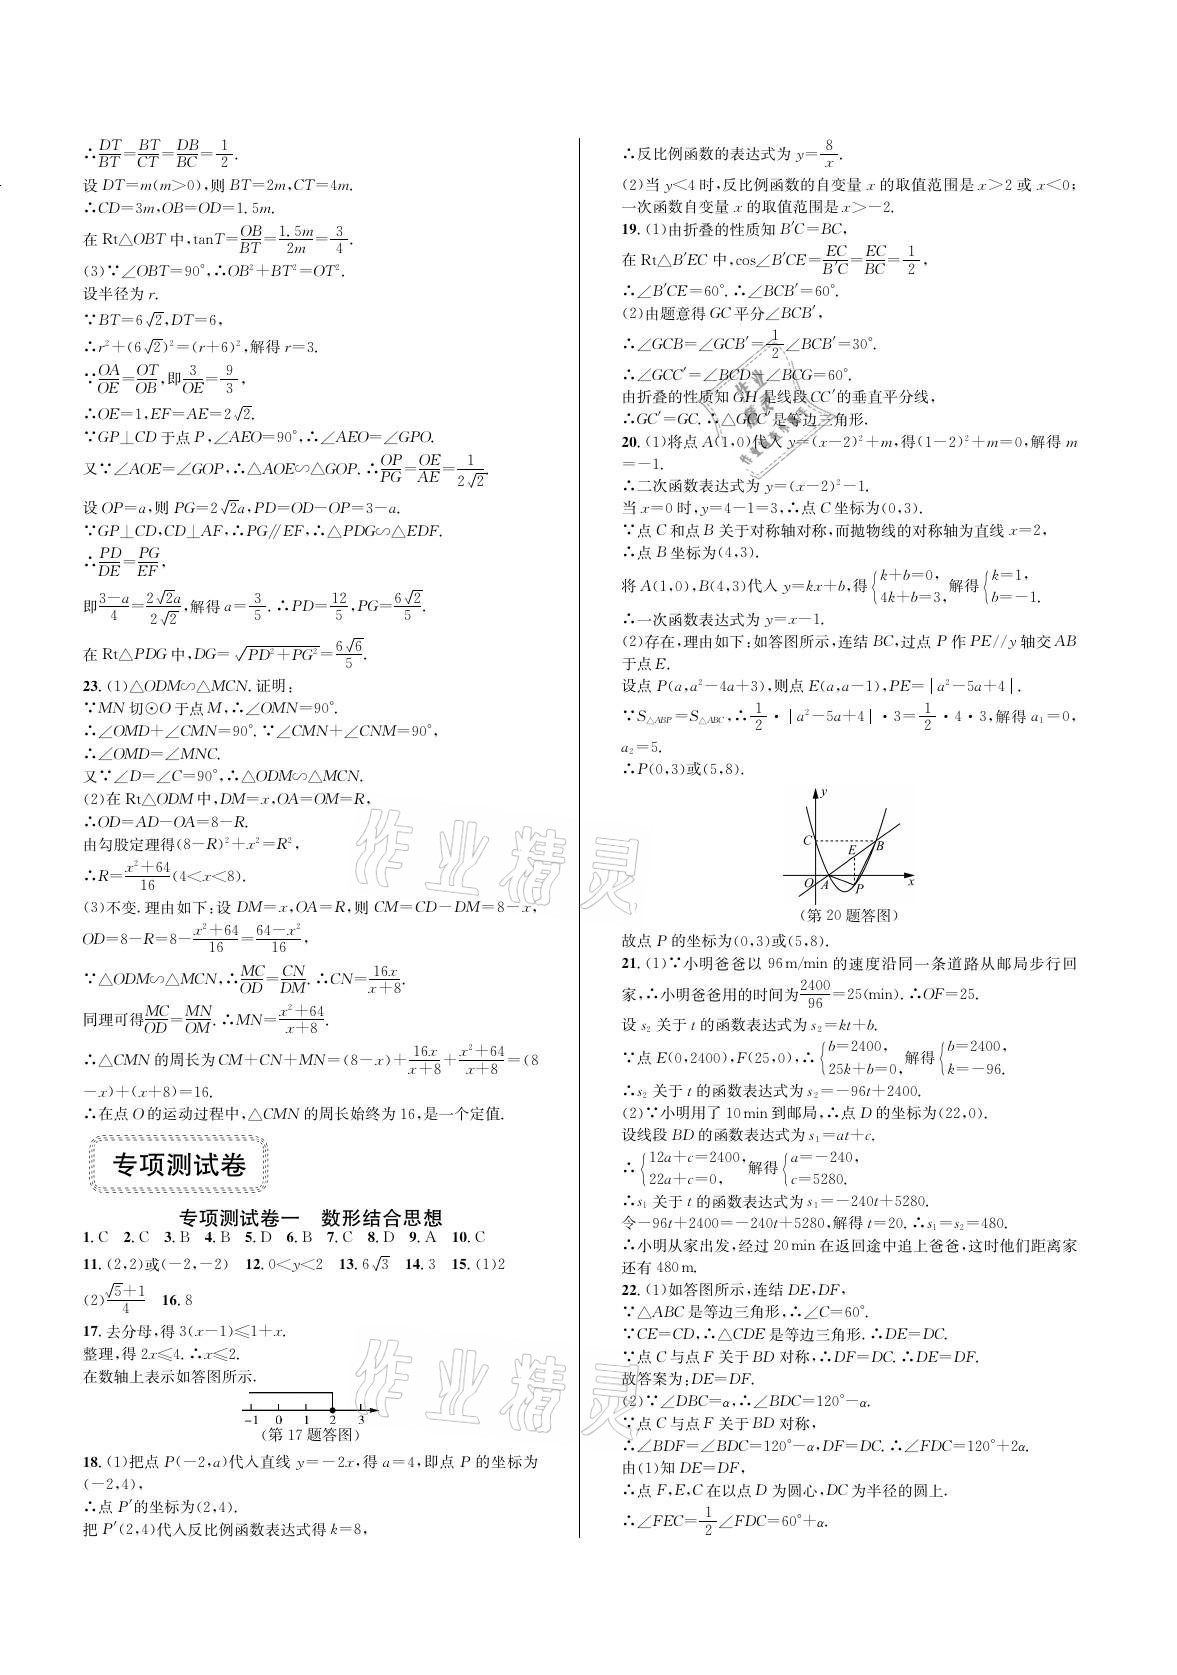 ∴DT/BT=BT/CT=DB/BC=1/2.
设 DT=m(m>0),则 BT=2m,CT=4m.
∴CD=3m,OB=OD=1.5m.
在 Rt△OBT 中,tanT=OB/BT=1.5m/2m=3/4.
(3)∵∠OBT=90°,∴OB²+BT²=OT².
设半径为 r.
∵BT=6√2,DT=6,
∴r²+(6√2)²=(r+6)²,解得 r=3.
∵OA/OE=OT/OB,即3/OE=9/3,
∴OE=1,EF=AE=2√2.
∵GP⊥CD 于点 P,∠AEO=90°,∴∠AEO=∠GPO.
又∵∠AOE=∠GOP,∴△AOE∽△GOP.∴OP/PG=OE/AE=1/2√2.
设 OP=a,则 PG=2√2a,PD=OD-OP=3-a.
∵GP⊥CD,CD⊥AF,∴PG∥EF,∴△PDG∽△EDF.
∴PD/DE=PG/EF,
即(3-a)/4=2√2a/2√2,解得 a=3/5.∴PD=12/5,PG=6√2/5.
在 Rt△PDG 中,DG=√(PD²+PG²)=6√6/5.
23. (1)△ODM∽△MCN.证明:
∵MN 切⊙O 于点 M,∴∠OMN=90°.
∴∠OMD+∠CMN=90°.∵∠CMN+∠CNM=90°,
∴∠OMD=∠MNC.
又∵∠D=∠C=90°,∴△ODM∽△MCN.
(2)在 Rt△ODM 中,DM=x,OA=OM=R,
∴OD=AD-OA=8-R.
由勾股定理得(8-R)²+x²=R²,
∴R=(x²+64)/16(4<x<8).
(3)不变.理由如下:设 DM=x,OA=R,则 CM=CD-DM=8-x,
OD=8-R=8-(x²+64)/16=(64-x²)/16,
∵△ODM∽△MCN,∴MC/OD=CN/DM.∴CN=16x/(x+8).
同理可得MC/OD=MN/OM.∴MN=(x²+64)/(x+8).
∴△CMN 的周长为 CM+CN+MN=(8-x)+16x/(x+8)+(x²+64)/(x+8)=(8
-x)+(x+8)=16.
∴在点 O 的运动过程中,△CMN 的周长始终为 16,是一个定值.
专项测试卷
专项测试卷一 数形结合思想
1. C 2. C 3. B 4. B 5. D 6. B 7. C 8. D 9. A 10. C
11. (2,2)或(-2,-2) 12. 0<y<2 13. 6√3 14. 3 15. (1)2
(2)(√5+1)/4 16. 8
17. 去分母,得 3(x-1)≤1+x.
整理,得 2x≤4.∴x≤2.
在数轴上表示如答图所示.
-1 0 1 2 3
(第 17 题答图)
18. (1)把点 P(-2,a)代入直线 y=-2x,得 a=4,即点 P 的坐标为
(-2,4),
∴点 P′的坐标为(2,4).
把 P′(2,4)代入反比例函数表达式得 k=8,
∴反比例函数的表达式为 y=8/x.
(2)当 y<4 时,反比例函数的自变量 x 的取值范围是 x>2 或 x<0;
一次函数自变量 x 的取值范围是 x>-2.
19. (1)由折叠的性质知 B′C=BC,
在 Rt△B′EC 中,cos∠B′CE=EC/B′C=EC/BC=1/2,
∴∠B′CE=60°.∴∠BCB′=60°.
(2)由题意得 GC 平分∠BCB′,
∴∠GCB=∠GCB′=1/2∠BCB′=30°.
∴∠GCC′=∠BCD-∠BCG=60°.
由折叠的性质知 GH 是线段 CC′的垂直平分线,
∴GC′=GC.∴△GCC′是等边三角形.
20. (1)将点 A(1,0)代入 y=(x-2)²+m,得(1-2)²+m=0,解得 m
=-1.
∴二次函数表达式为 y=(x-2)²-1.
当 x=0 时,y=4-1=3,∴点 C 坐标为(0,3).
∵点 C 和点 B 关于对称轴对称,而抛物线的对称轴为直线 x=2,
∴点 B 坐标为(4,3).
将 A(1,0),B(4,3)代入 y=kx+b,得{k+b=0, 4k+b=3, 解得{k=1, b=-1.
∴一次函数表达式为 y=x-1.
(2)存在,理由如下:如答图所示,连结 BC,过点 P 作 PE//y 轴交 AB
于点 E.
设点 P(a,a²-4a+3),则点 E(a,a-1),PE=|a²-5a+4|.
∵S△ABP=S△ABC,∴1/2·|a²-5a+4|·3=1/2·4·3,解得 a₁=0,
a₂=5.
∴P(0,3)或(5,8).
y
C E B
O A P x
(第 20 题答图)
故点 P 的坐标为(0,3)或(5,8).
21. (1)∵小明爸爸以 96 m/min 的速度沿同一条道路从邮局步行回
家,∴小明爸爸用的时间为2400/96=25(min).∴OF=25.
设 s₂ 关于 t 的函数表达式为 s₂=kt+b.
∵点 E(0,2400),F(25,0),∴{b=2400, 25k+b=0, 解得{b=2400, k=-96.
∴s₂ 关于 t 的函数表达式为 s₂=-96t+2400.
(2)∵小明用了 10 min 到邮局,∴点 D 的坐标为(22,0).
设线段 BD 的函数表达式为 s₁=at+c.
∴{12a+c=2400, 22a+c=0, 解得{a=-240, c=5280.
∴s₁ 关于 t 的函数表达式为 s₁=-240t+5280.
令-96t+2400=-240t+5280,解得 t=20.∴s₁=s₂=480.
∴小明从家出发,经过 20 min 在返回途中追上爸爸,这时他们距离家
还有 480 m.
22. (1)如答图所示,连结 DE,DF,
∵△ABC 是等边三角形,∴∠C=60°.
∵CE=CD,∴△CDE 是等边三角形.∴DE=DC.
∵点 C 与点 F 关于 BD 对称,∴DF=DC.∴DE=DF.
故答案为:DE=DF.
(2)∵∠DBC=α,∴∠BDC=120°-α.
∵点 C 与点 F 关于 BD 对称,
∴∠BDF=∠BDC=120°-α,DF=DC.∴∠FDC=120°+2α.
由(1)知 DE=DF,
∴点 F,E,C 在以点 D 为圆心,DC 为半径的圆上.
∴∠FEC=1/2∠FDC=60°+α.
作业精灵
作业精灵
作业精灵